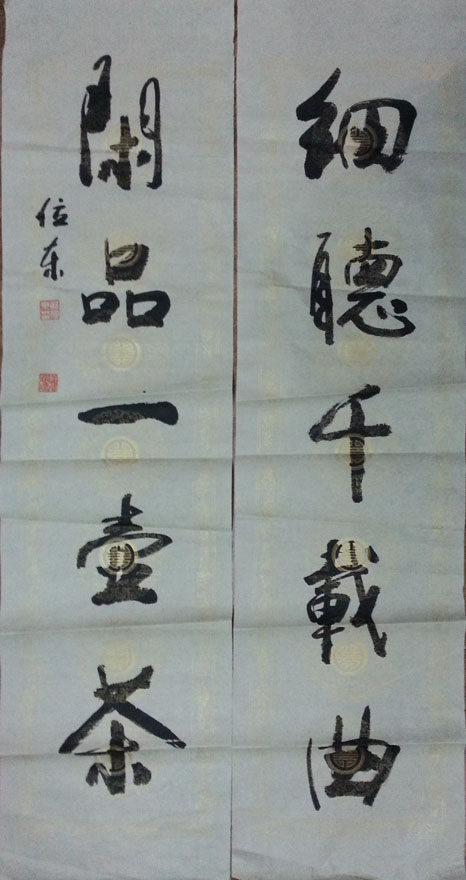 細聽千載曲
閑品一壺茶
位东